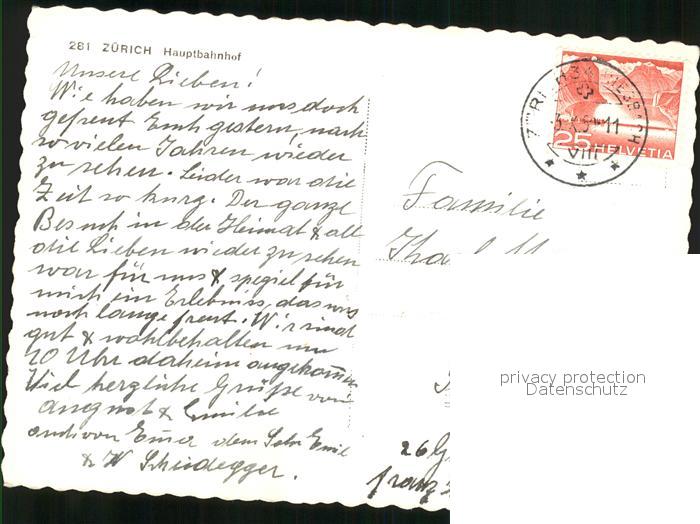 281 ZÜRICH Hauptbahnhof
Unsere Lieben!
Wie haben wir uns doch
gefreut Euch gestern, nach
so vielen Jahren wieder
zu sehen. Leider war die
Zeit so kurz. Der ganze
Besuch in der Heimat & all
die Lieben wieder zu sehen
war für uns & speziel für
mich ein Erlebniss, das uns
noch lange freut. Wir sind
gut & wohlbehalten um
10 Uhr daheim angekommen
Viel herzliche Grüsse von
August & Emilie
auch von dem Sohn Emil
& W Scheidegger.
HELVETIA
25
VIII
Familie
26
privacy protection
Datenschutz